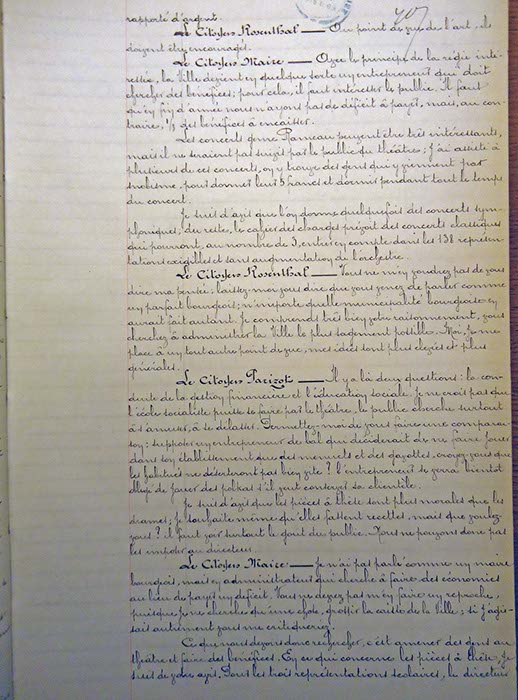 rapporté d'argent.
407
Le Citoyen Rosenthal — Au point de vue de l'art, ils
doivent être encouragés.
Le Citoyen Maire — Avec le principe de la régie inté-
ressée, la Ville devient en quelque sorte un entrepreneur qui doit
chercher des bénéfices; pour cela, il faut intéresser le public. Il faut
qu'en fin d'année nous n'ayons pas de déficit à payer, mais, au con-
traire, des bénéfices à encaisser.
Les concerts genre Rameau peuvent être très intéressants,
mais ils ne seraient pas suivis par le public du théâtre; j'ai assisté à
plusieurs de ces concerts, on y trouve des gens qui y viennent par
snobisme, pour donner leur 5 francs et dormir pendant tout le temps
du concert.
Je suis d'avis que l'on donne quelquefois des concerts sym-
phoniques, du reste, le cahier des charges prévoit des concerts classiques
qui pourront, au nombre de 3, entrer en compte dans les 138 représen-
tations exigibles et sans augmentation de l'orchestre.
Le Citoyen Rosenthal — Vous ne m'en voudrez pas de vous
dire ma pensée; laissez-moi vous dire que vous venez de parler comme
un parfait bourgeois; n'importe quelle municipalité bourgeoise en
aurait fait autant. Je comprends très bien votre raisonnement, vous
cherchez à administrer la Ville le plus sagement possible. Moi, je me
place à un tout autre point de vue, mes idées sont plus élevées et plus
générales.
Le Citoyen Parizot — Il y a là deux questions: la con-
duite de la gestion financière et l'éducation sociale. Je ne crois pas que
l'école socialiste puisse se faire par le théâtre, le public cherche surtout
à s'amuser, à se délasser. Permettez-moi de vous faire une comparai-
son: supposez un entrepreneur de bal qui déciderait de ne faire jouer
dans son établissement que des menuets et des gavottes, croyez-vous que
les habitués ne déserteront pas bien vite? l'entrepreneur se verra bientôt
obligé de jouer des polkas s'il veut conserver sa clientèle.
Je suis d'avis que les pièces à thèse sont plus morales que les
drames; je souhaite même qu'elles fassent recettes, mais que voulez-
vous? il faut voir surtout le goût du public. Nous ne pouvons donc pas
les imposer au directeur.
Le Citoyen Maire — Je n'ai pas parlé comme un maire
bourgeois, mais en administrateur qui cherche à faire des économies
au lieu de payer un déficit. Vous ne devez pas m'en faire un reproche,
puisque je ne cherche qu'une chose, grossir la caisse de la Ville; si j'agis-
sais autrement vous me critiqueriez.
Ce que nous devons donc rechercher, c'est amener des gens au
théâtre et faire des bénéfices. En ce qui concerne les pièces à thèse, je
suis de votre avis. Dans les trois représentations scolaires, le directeur